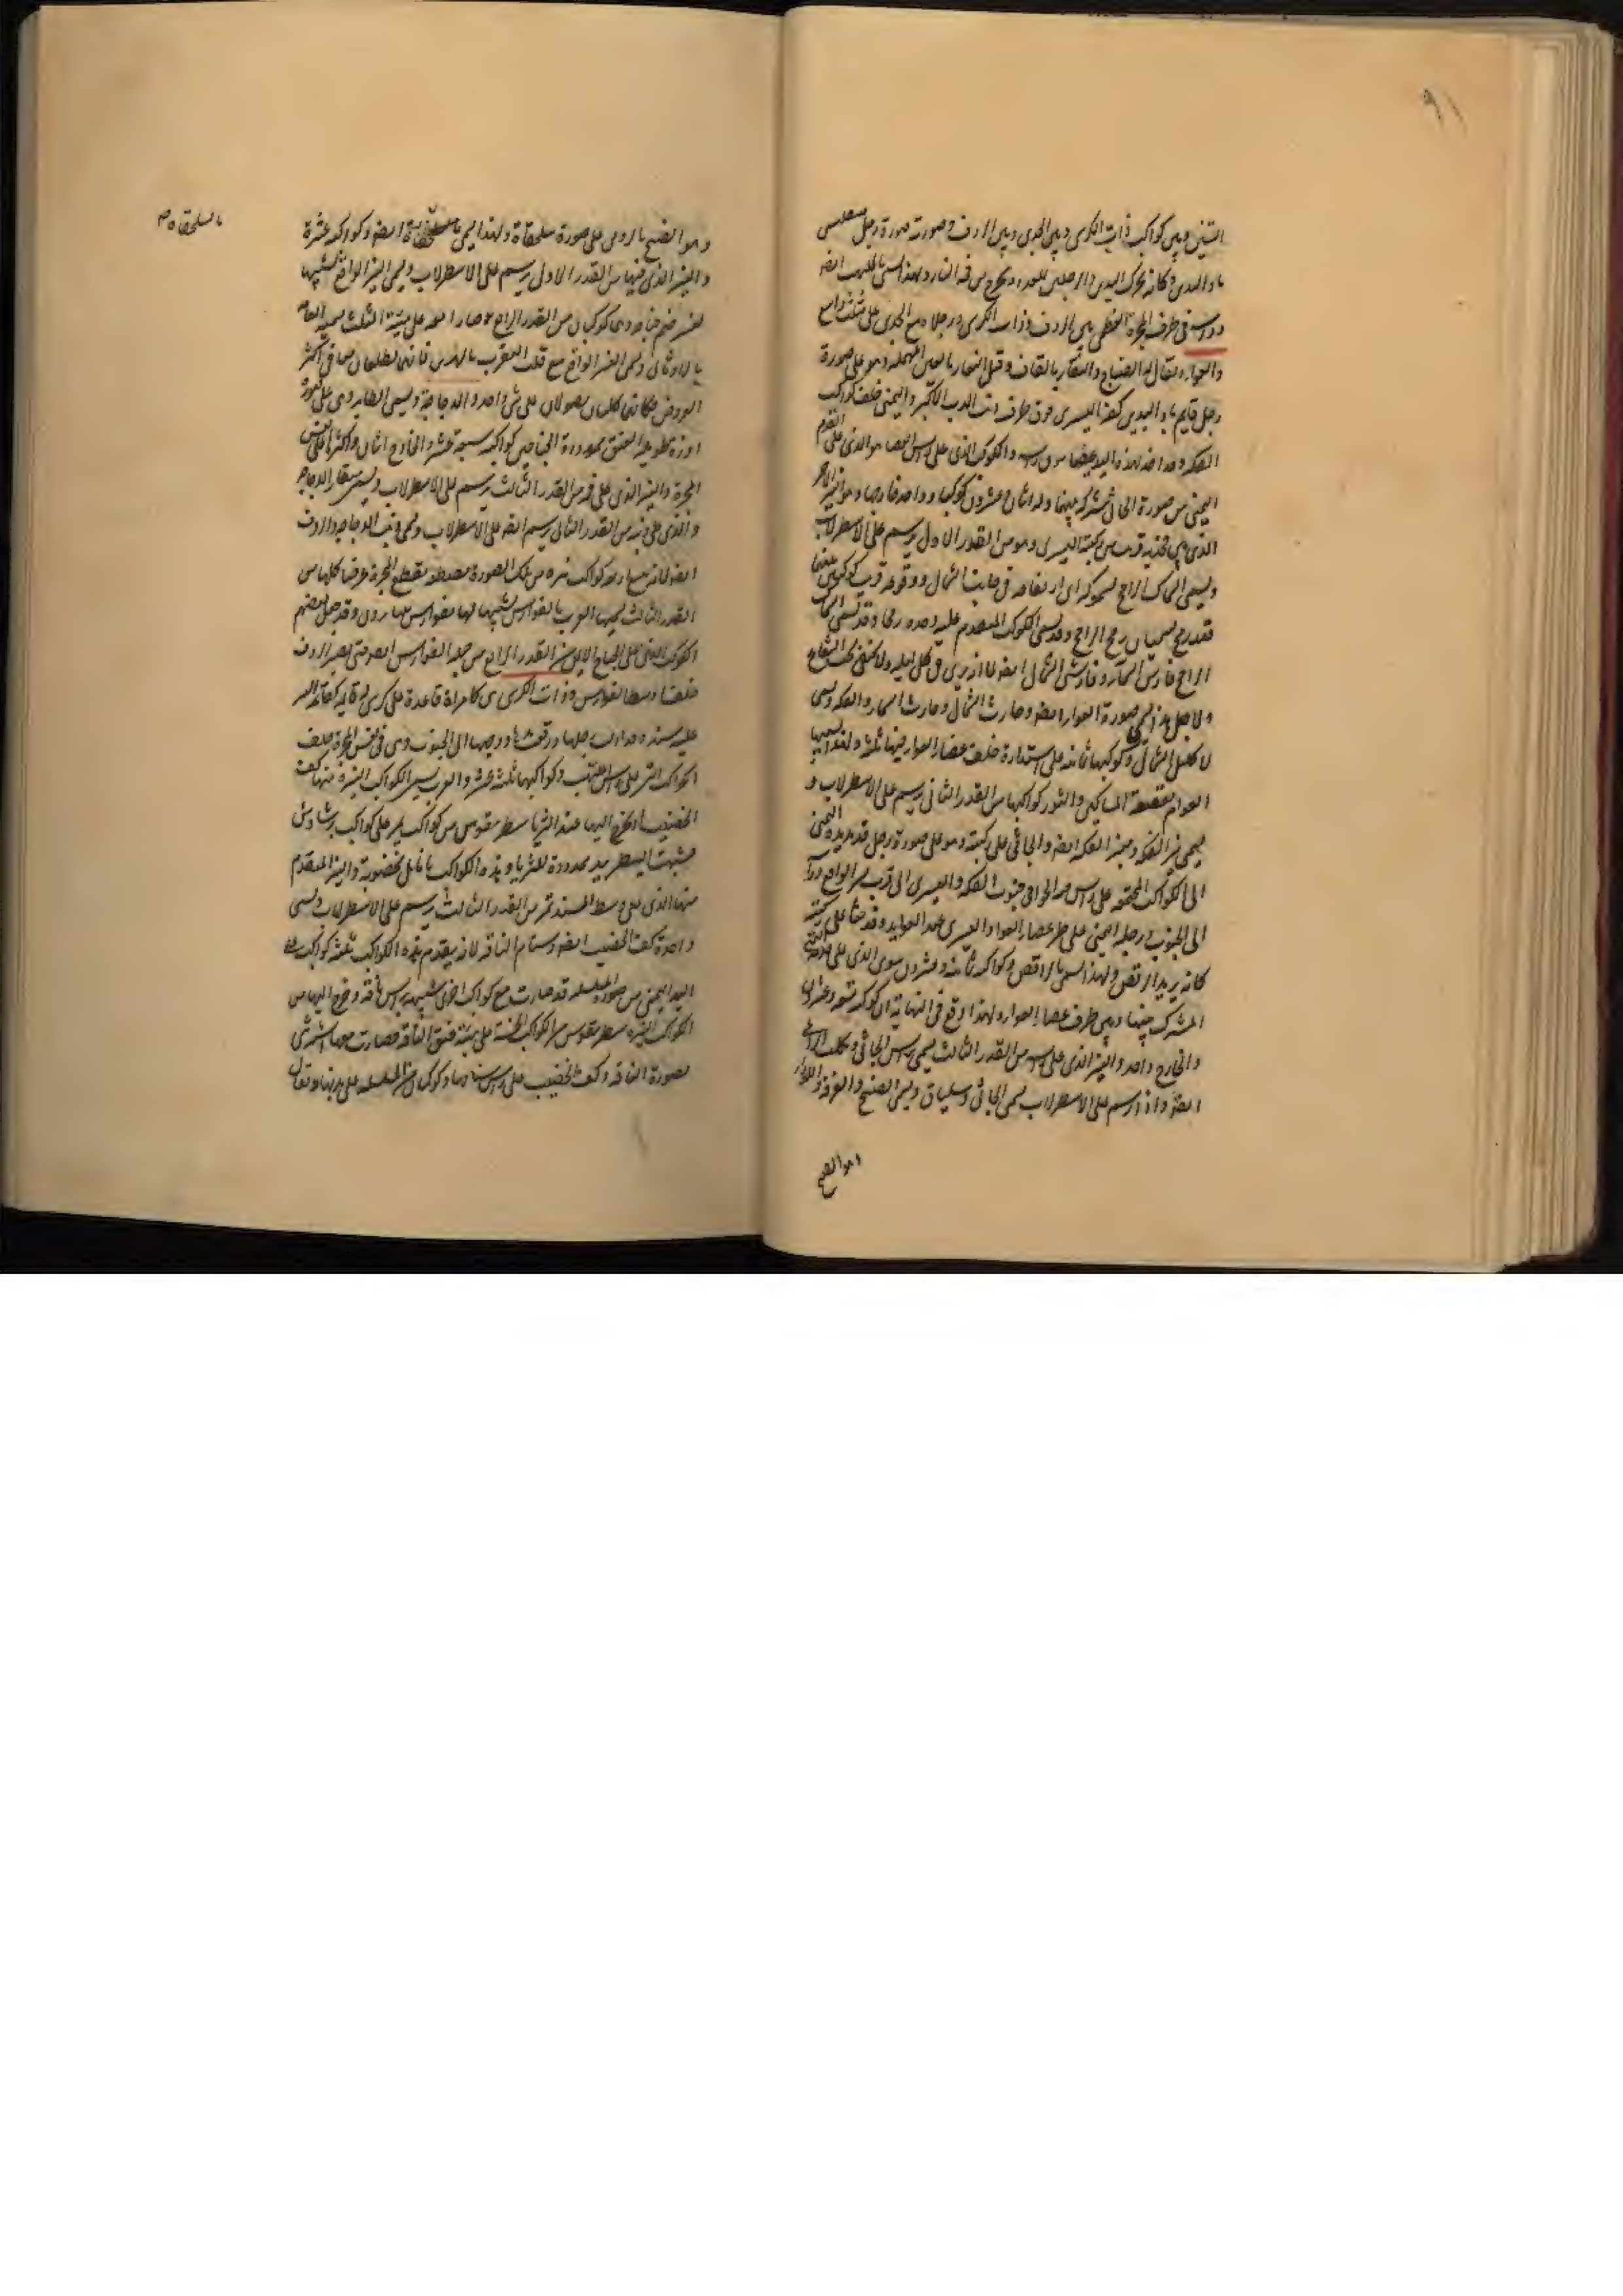 ٩١
التنين وبين كواكب ذات الكرسى وبين الجدى وبين الردف وصورته صورة رجل
ماد اليدين وكانه يحرك اليدين والرجلين للعدو ويخرج من فمه النار ولهذا يسمى بالملتهب ايضه
وراسه فى طرف المجرة العظمى بين الردف وذات الكرسى ورجلاه مع الجدى على مثلث واسع
والعواء ويقال له الصياح والنقار بالقاف وقيل النعار بالعين المهملة وهو على صورة
رجل قايم ماد اليدين كفه اليسرى فوق طرف ذنب الدب الاكبر واليمنى خلف كواكب
الفكه وقد اخذ بهذه اليد عصا من راسه والكوكب الذى على راس العصا هو الذى على القدم
اليمنى من صورة الجاثى مشترك بينهما وله اثنان وعشرون كوكبا وواحد خارجها وهو النير الاحمر
الذى بين فخذيه قريب من ركبته اليسرى وهو من القدر الاول يرسم على الاسطرلاب
ويسمى السماك الرامح لسموكه اى ارتفاعه فى جانب الشمال ووقوعه قرب كوكبين
رمح يسميان رمح الرامح وقد يسمى الكوكب المتقدم عليه وحده رمحا وقد يسمى السماك
الرامح فارس السماء وفارس الشمال ايضه لانه يرى فى كل ليلة ولا يختفى تحت الشعاع
ولاجل هذا يسمى صورة العواء ايضه وحارث الشمال وحارث السماء والفكه وتسمى
الاكليل الشمالى وكوكبها ثمانية على استدارة خلف عصا العواء فيها ثلمة ولهذا يسميها
العوام بقصعة المساكين والنور كواكبها من القدر الثانى يرسم على الاسطرلاب و
يسمى نير الفكه ومنير الفكه ايضه والجاثى على ركبته وهو على صورة رجل قد مد يده اليمنى
الى الكواكب المجتمعة على راس الحوا فى جنوب الفكه واليسرى الى قرب نسر الواقع وراسه
الى الجنوب ورجله اليمنى على طرف عصا العواء واليسرى عند العوايد وقد جثا على ركبته
كانه يريد الرقص ولهذا يسمى بالراقص وكواكبه ثمانية وعشرون سوى الذى على
المشترك بينها وبين طرف عصا العواء ولهذا وقع فى النهاية ان كوكبه تسعة وعشرون
والخارج واحد والنير الذى على راسه من القدر الثالث يسمى راس الجاثى وكلب الراعى
ايضه واذا رسم على الاسطرلاب يسمى الجاثى وسلياق ويسمى الصنج والمعزفة واللورا
وهو الصنج
وهو الصنج بالرومى على صورة سلحفاة ولهذا يسمى بالسلحفاة ايضه وكواكبه عشرة
والنير الذى فيها من القدر الاول يرسم على الاسطرلاب ويسمى النسر الواقع لتشبيهها
بنسر ضم جناحيه وهما كوكبان من القدر الرابع صارا معه على هيئة المثلث يسميه العامة
بالاثافى ويسمى النسر الواقع مع قلب العقرب بالهرارين فانهما يطلعان معا فى اكثر
العروض فكانهما كلبان يصولان على شئ واحد والدجاجة ويسمى الطاير وهى على صورة
اوزة طويلة العنق ممدودة الجناحين كواكبه سبعة عشر والخارج اثنان واكثرها على نفس
المجرة والنير الذى على فمه من القدر الثالث يرسم على الاسطرلاب ويسمى منقار الدجاجة
والذى على ذنبه من القدر الثانى يرسم ايضه على الاسطرلاب ويسمى ذنب الدجاجة والردف
ايضه لانه مع اربعة كواكب نيره من تلك الصورة مصطفة يقطع المجرة عرضا كلها من
القدر الثالث يسميها العرب بالفوارس لتشبيهها لها بفوارس يتبارون وقد جعل بعضهم
الكوكب الذى على الجناح الايمن من القدر الرابع من جملة الفوارس ايضه حتى يصير الردف
خلف وسط الفوارس وذات الكرسى هى كامراة قاعدة على كرسى له قايمة كقائمة المنبر
عليه مسند وقد ادلت رجلها ورقعتها ووجهها الى الجنوب وهى فى نفس المجرة خلف
الكواكب التى على راس الملتهب وكواكبها ثلثة عشر والعرب يسمى الكواكب النيرة منها كف
الخضيب اذ يخرج اليها عند الثريا سطر مقوس من كواكب يمر على كواكب برشاوش
فشبهت السطر بيد ممدودة للثريا وهذه الكواكب بانامل مخضوبة والنير المتقدم
منها الذى على وسط المسند من القدر الثالث يرسم على الاسطرلاب ويسمى
واحده كف الخضيب ايضه وسنام الناقة لانه يتقدم هذه الكواكب ثلثة كواكب على
اليد اليمنى من صورة المسلسلة قد صارت مع كواكب اخرى شبيهة براس ناقة وخرج اليها من
الكواكب النيرة سطر مقوس من الكواكب الخفية على هيئة عنق الناقة فصارت جميعها اشبه شئ
بصورة الناقة وكف الخضيب على راس سنامها وكوكبان من المسلسلة على بدنها ويقال
بالسلحفاة صح